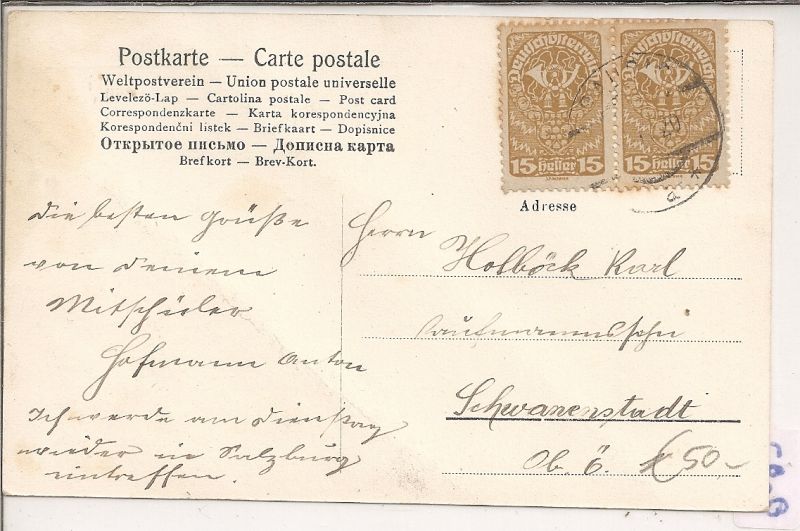 Postkarte — Carte postale
Weltpostverein — Union postale universelle
Levelező-Lap — Cartolina postale — Post card
Correspondenzkarte — Karta korespondencyjna
Korespondenčni listek — Briefkaart — Dopisnice
Открытое письмо — Дописна карта
Brefkort — Brev-Kort.
Deutschösterreich Deutschösterreich
15 Heller 15 15 Heller 15
20
Adresse
Die besten Grüße
von Deinem
Mitschüler
Hofmann Anton
Ich werde am Dienstag
wieder in Salzburg
eintreffen.
Herrn
Holböck Karl
Kaufmannssohn
Schwanenstadt
Ob. Ö.
€ 50,-